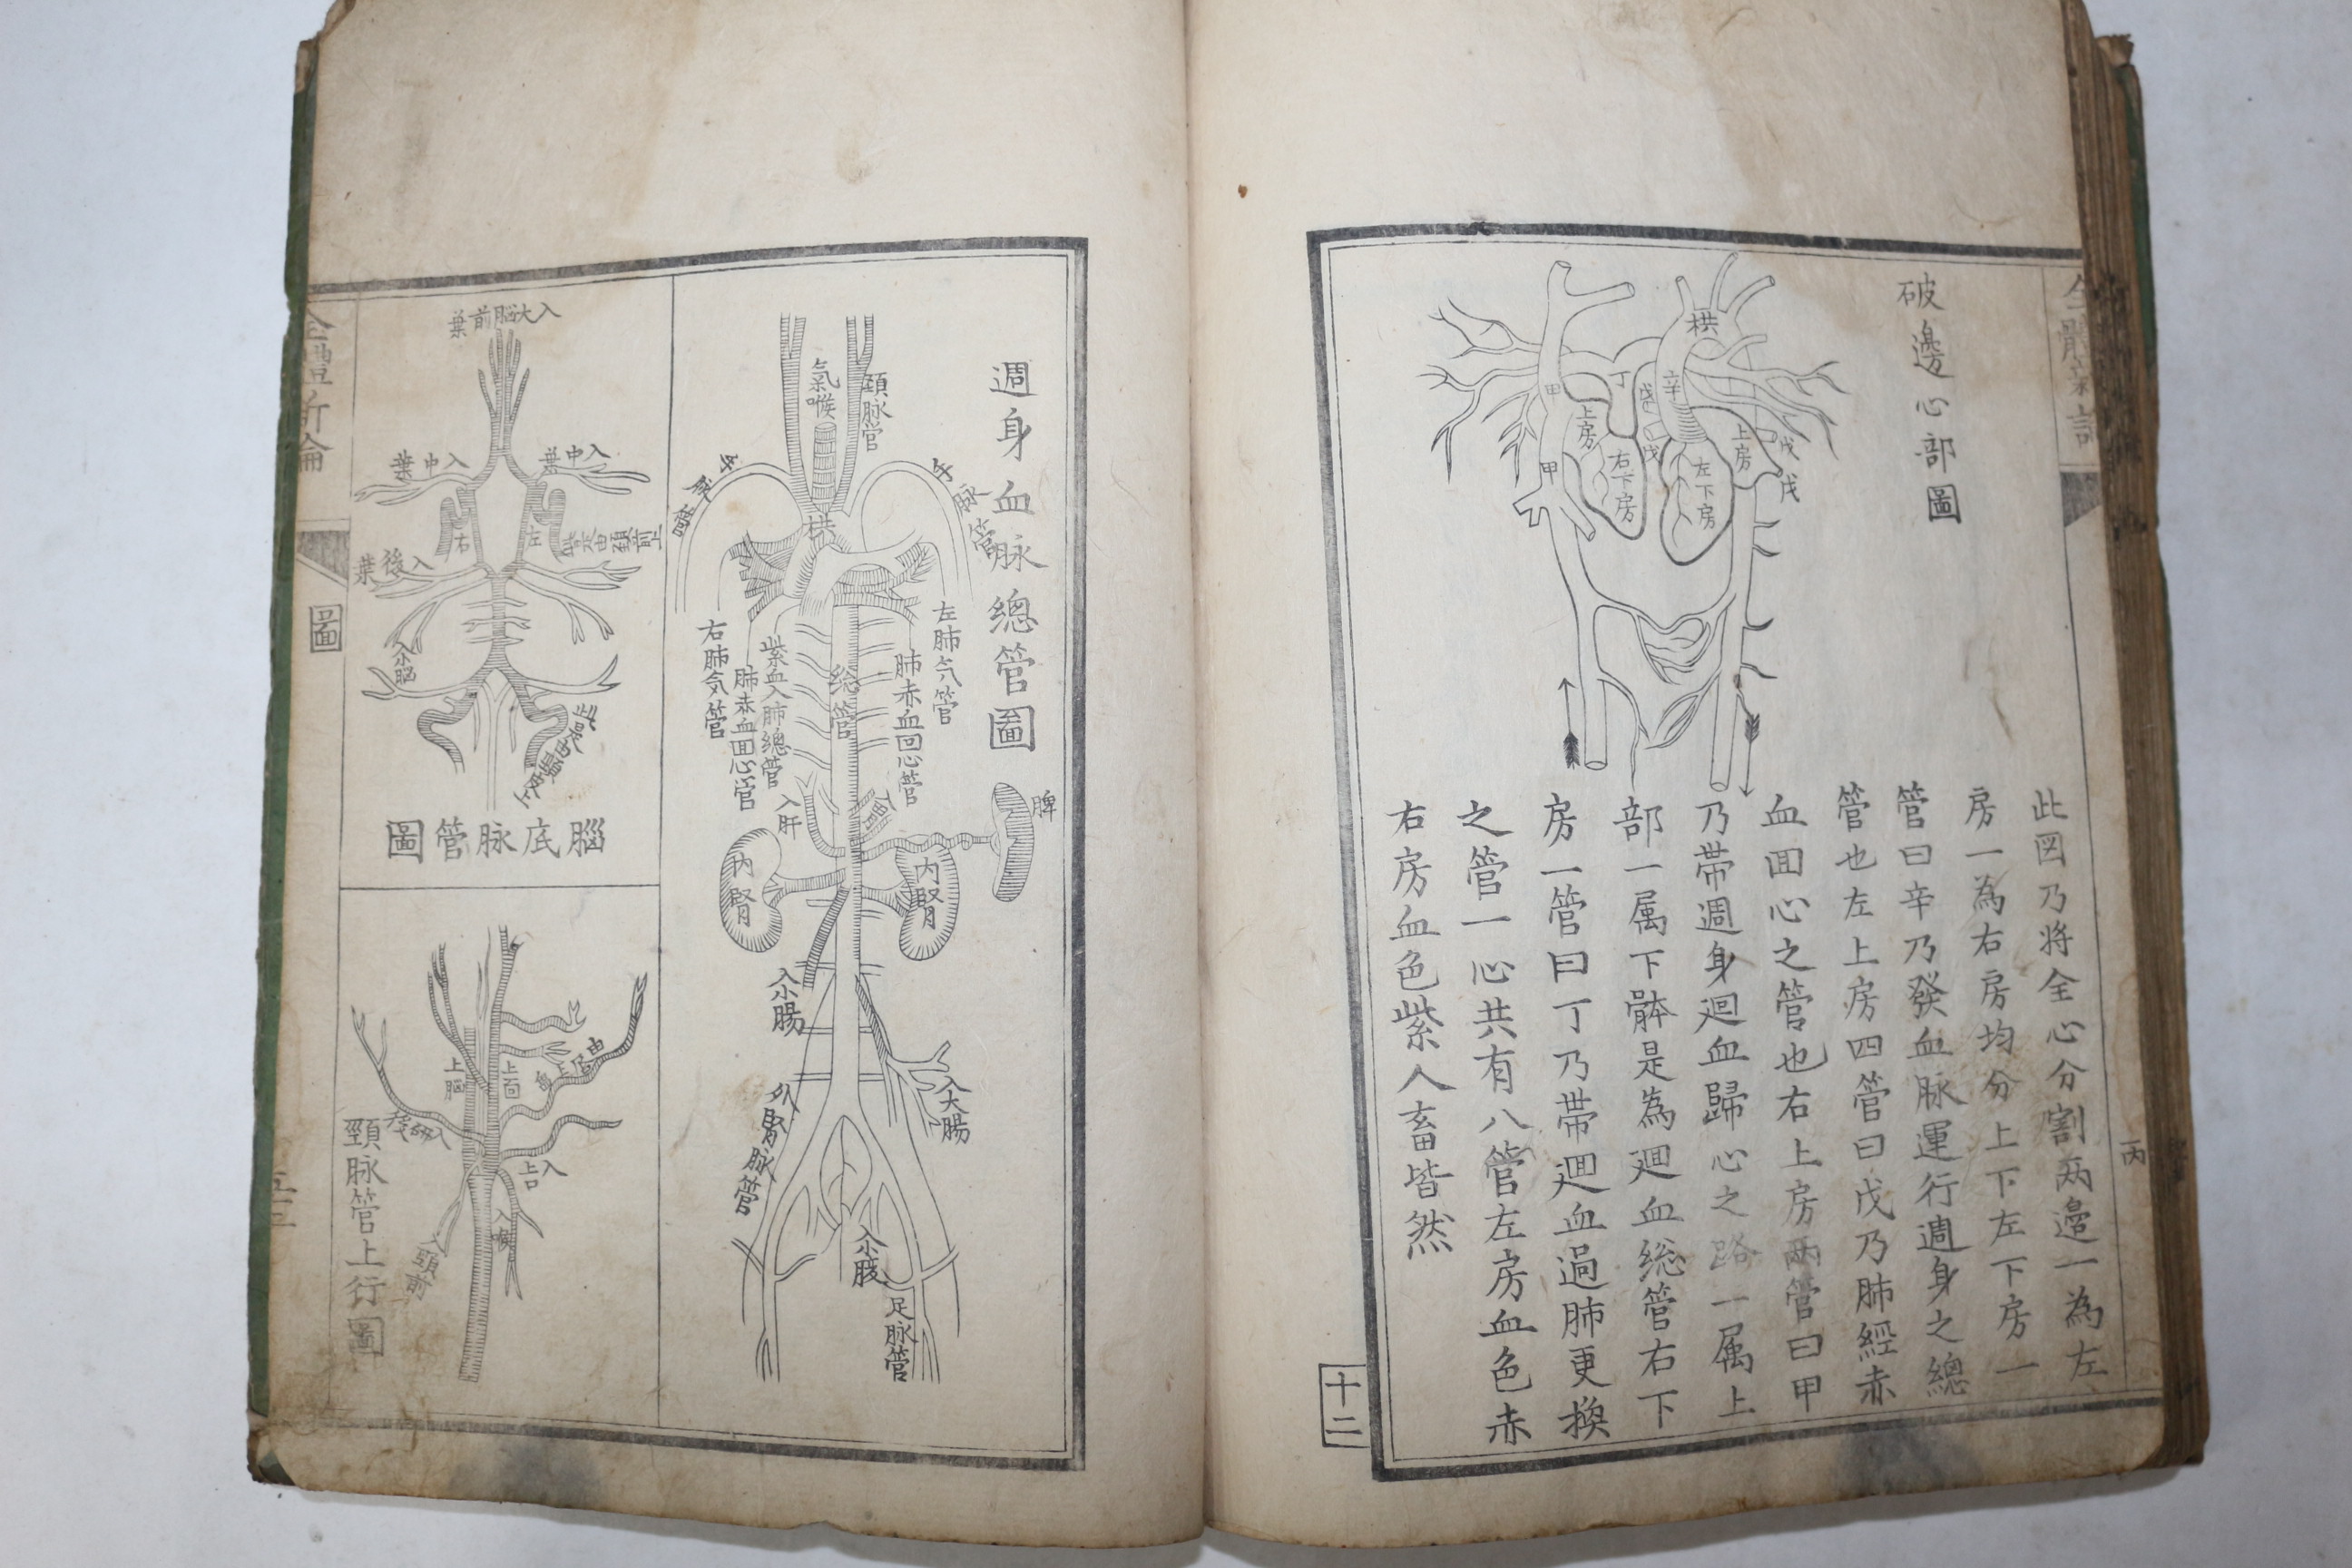 破邊心部圖
栱
丁
辛
戊
甲
上房
戊
右下房
左下房
上房
戊
戊
甲
此図乃将全心分割两邉一為左
房一為右房均分上下左下房一
管曰辛乃發血脉運行週身之總
管也左上房四管曰戊乃肺經赤
血囬心之管也右上房两管曰甲
乃帶週身迴血歸心之路一属上
部一属下骵是為迴血総管右下
房一管曰丁乃帶迴血過肺更換
之管一心共有八管左房血色赤
右房血色紫人畜皆然
丙
十二
週身血脉總管圖
氣喉
頸脉管
手脉管
手脉管
栱
左肺气管
肺赤血回心管
総管
紫血入肺總管
肺赤血回心管
右肺気管
入肝
入胃
脾
内腎
内腎
入小腸
入大腸
外腎脉管
足脉管
入大腦前葉
入中葉
入中葉
左
右
入後葉
入小腦
腦底脉管圖
上腦
上面
入舌
入喉
入頸前
頸脉管上行圖
圖